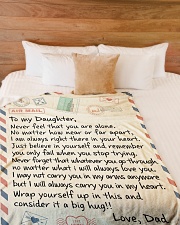 AIR MAIL
To my Daughter,
Never feel that you are alone.
No matter how near or far apart,
I am always right there in your heart.
Just believe in yourself and remember
you only fail when you stop trying.
Never forget that whatever you go through
no matter what i will always love you.
I may not carry you in my arms anymore
but I will always carry you in my heart.
Wrap yourself up in this and
consider it a big hug!!
Love, Dad